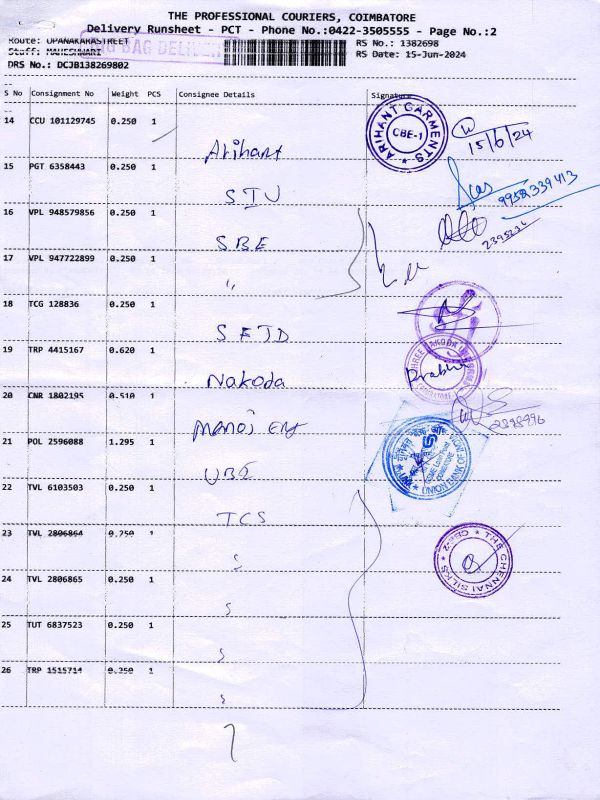 THE PROFESSIONAL COURIERS, COIMBATORE
Delivery Runsheet - PCT - Phone No.:0422-3505555 - Page No.:2
Route: OPANAKARASTREET
Staff: MAHESHWARI
RS No.: 1382698
RS Date: 15-Jun-2024
DRS No.: DCJB138269802
S No Consignment No Weight PCS Consignee Details Signature
14 CCU 101129745 0.250 1 Arihant ARIHANT GARMENTS CBE-1 15/6/24
15 PGT 6358443 0.250 1 STU 9952339413
16 VPL 948579856 0.250 1 SBE
17 VPL 947722899 0.250 1 "
18 TCG 128836 0.250 1
19 TRP 4415167 0.620 1 Nakoda Prabhu
20 CNR 1802195 0.510 1 Manoj
21 POL 2596088 1.295 1 UBI UNION BANK OF INDIA
22 TVL 6103503 0.250 1 TCS
23 TVL 2806864 0.250 1 THE CHENNAI SILKS CBE-2
24 TVL 2806865 0.250 1
25 TUT 6837523 0.250 1
26 TRP 1515714 0.250 1